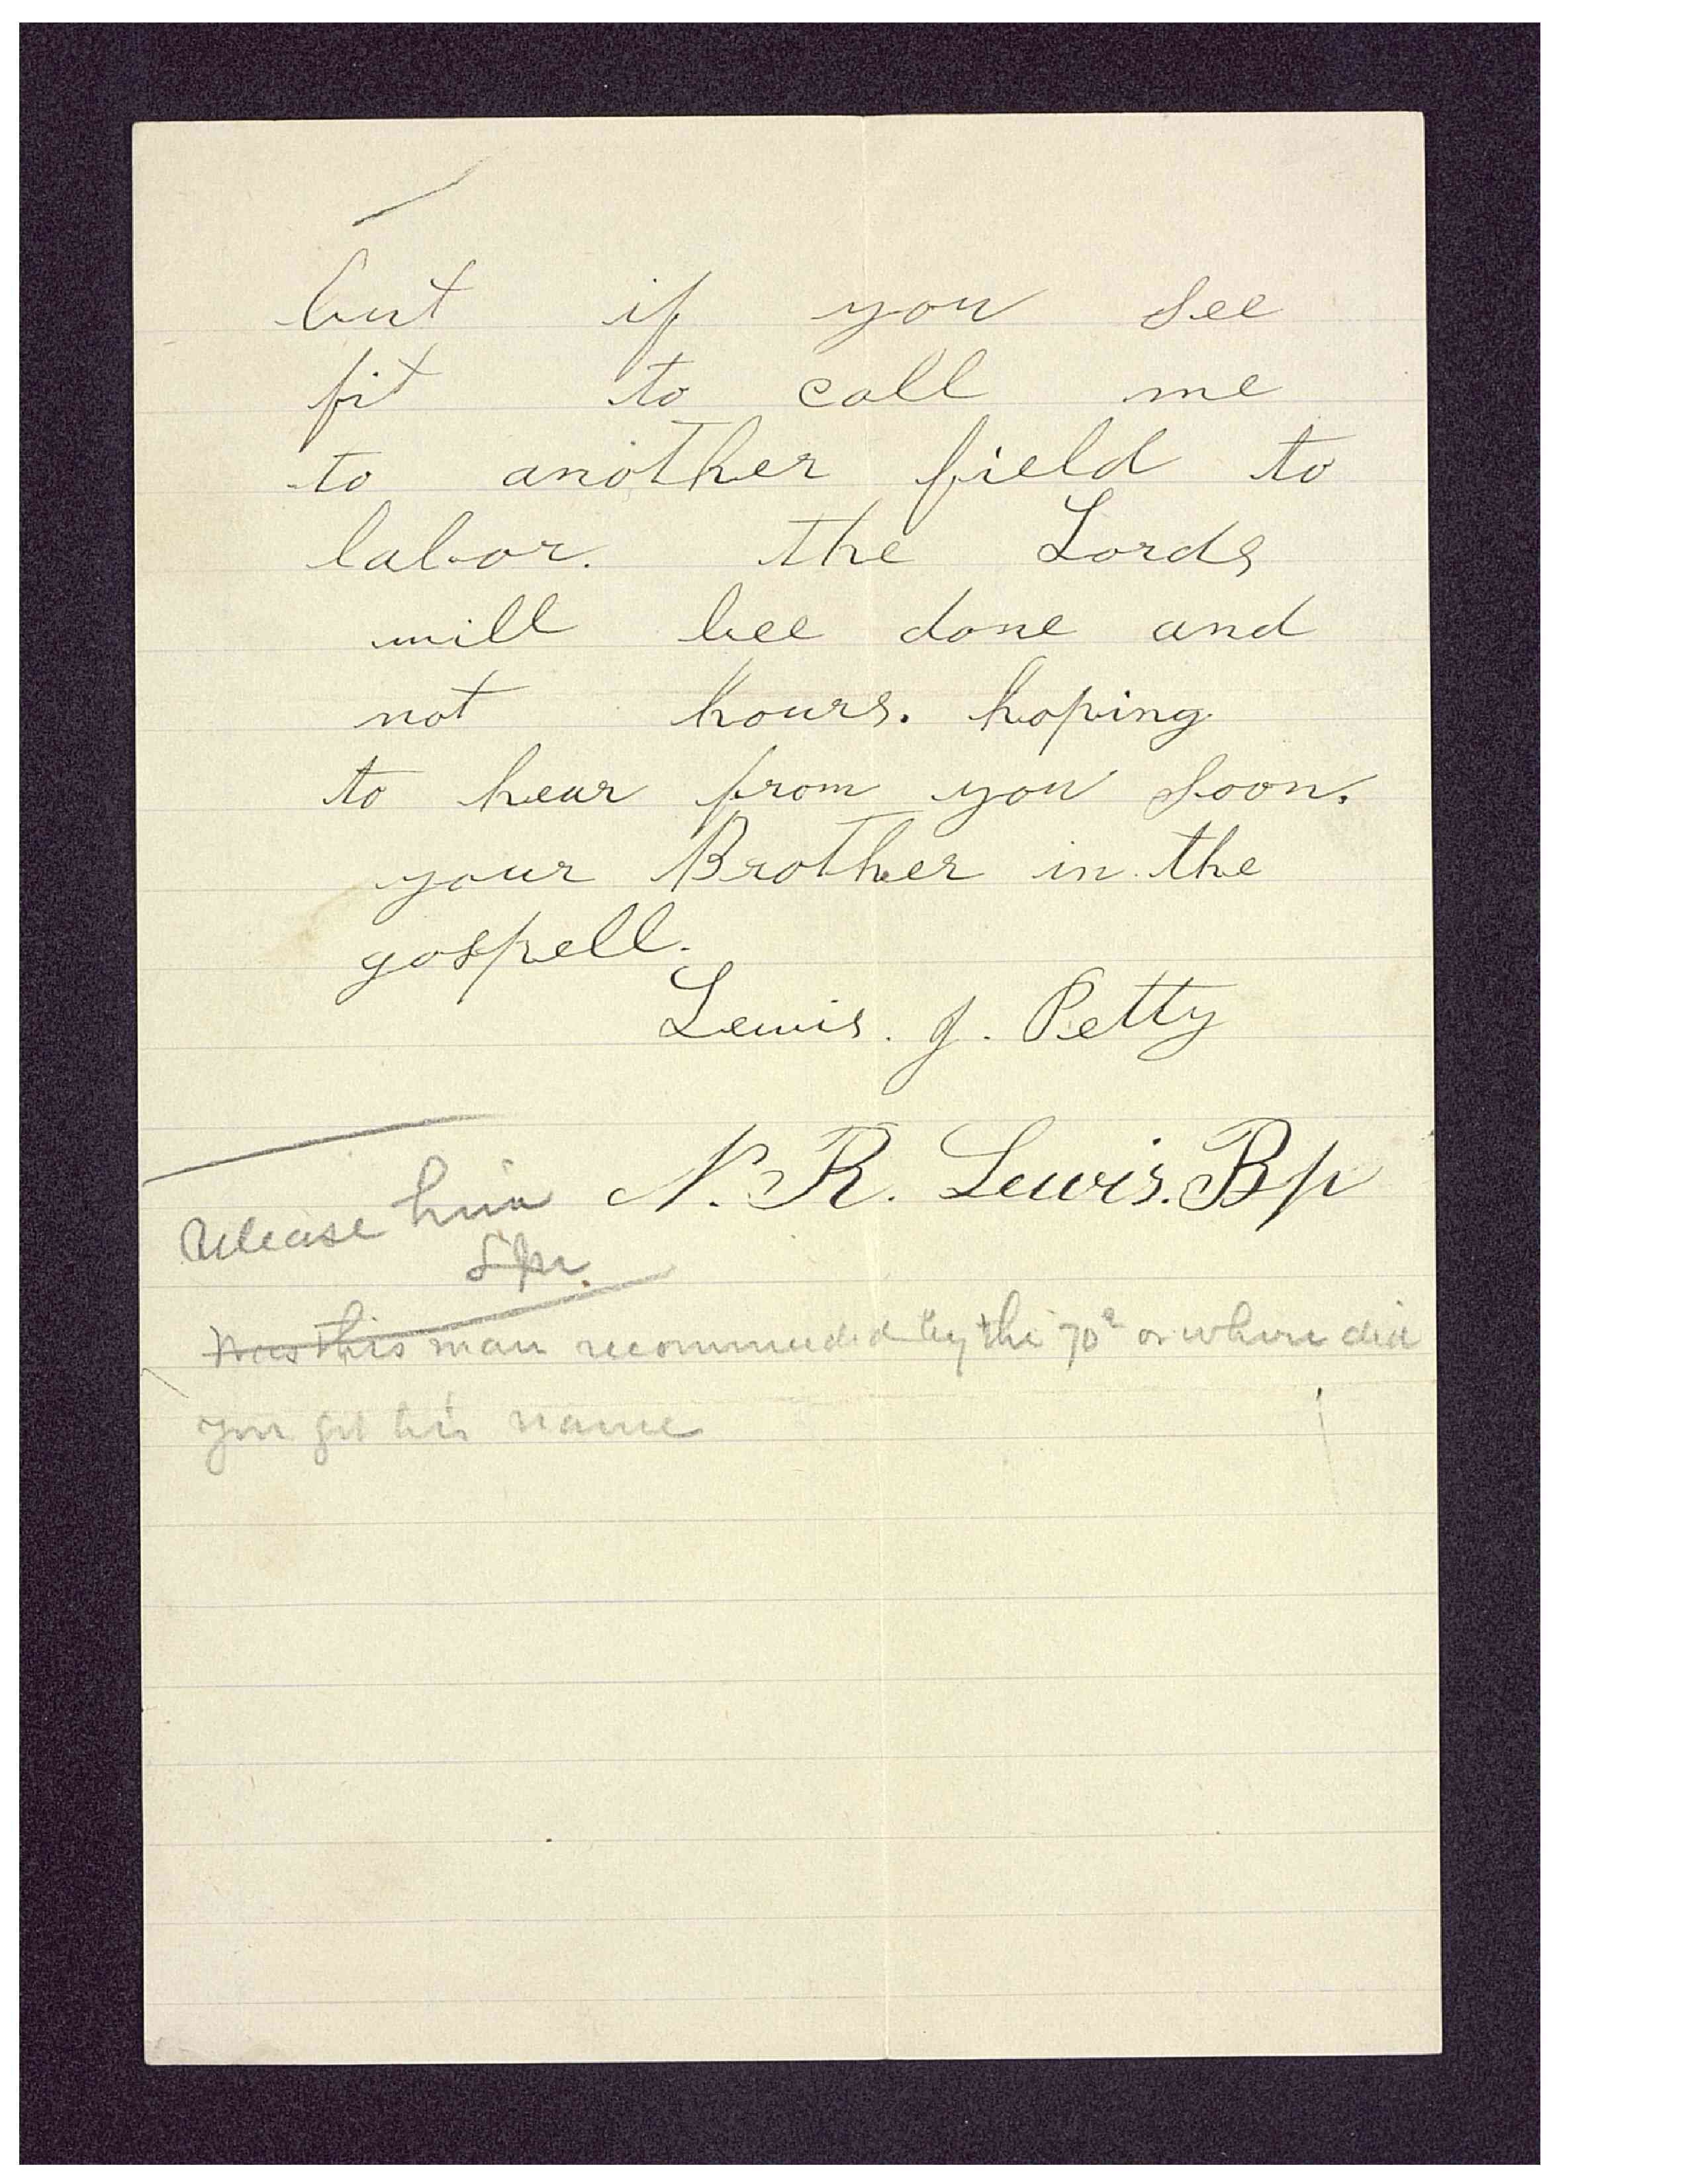 but if you see
fit to call me
to another field to
labor. the Lords
will bee done and
not hours. hoping
to hear from you soon.
your Brother in the
gospell.
Lewis. J. Petty
N. R. Lewis. Bp
Release him
Was this man recommended by the 70s or where did
you get his name